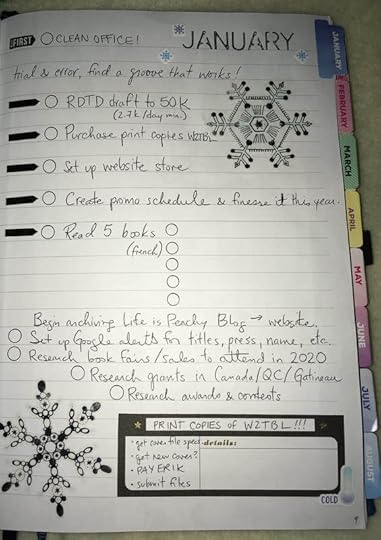 FIRST CLEAN OFFICE!
JANUARY
trial & error, find a groove that works!
RDTD draft to 50K
(2.7k/day min.)
Purchase print copies W2TBL
Set up website store
Create promo schedule & finesse it this year.
Read 5 books
(french)
Begin archiving Life is Peachy Blog → website.
Set up Google alerts for titles, press, name, etc.
Research book fairs/sales to attend in 2020
Research grants in Canada/QC/Gatineau
Research awards & contests
PRINT COPIES of W2TBL!!!
• get cover file specs
details:
• get new cover?
• PAY ERIK
• submit files
COLD
JANUARY
FEBRUARY
MARCH
APRIL
MAY
JUNE
JULY
AUGUST